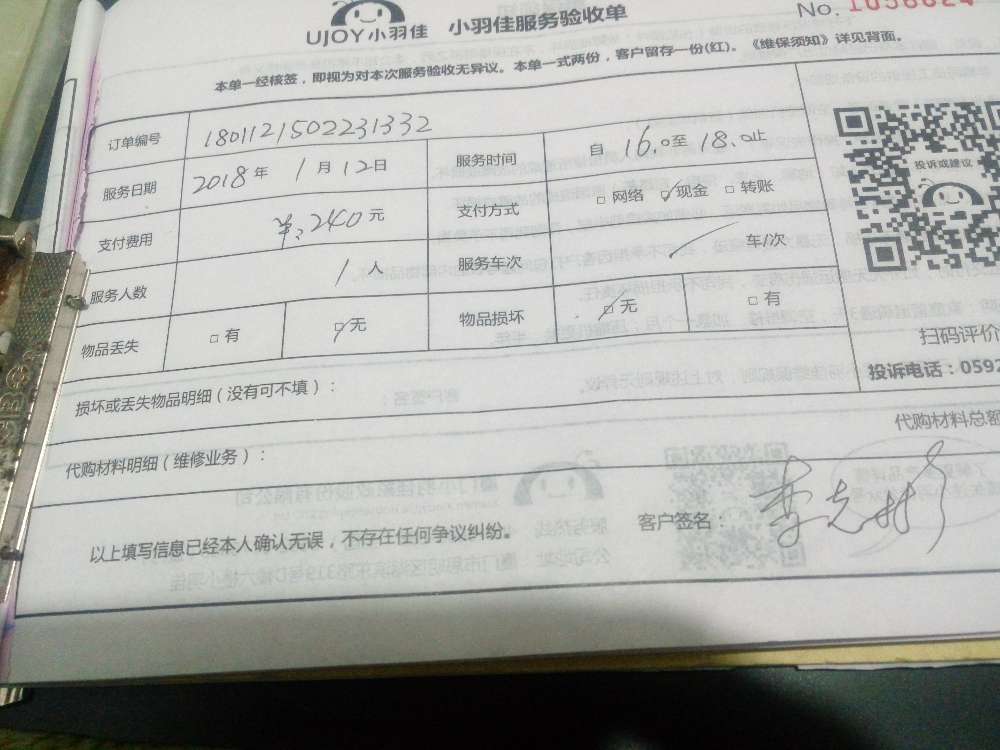 UJOY小羽佳 小羽佳服务验收单 No.
本单一经核签，即视为对本次服务验收无异议。本单一式两份，客户留存一份(红)。《维保须知》详见背面。
订单编号 1801121502231332
服务日期 2018年 1月12日 服务时间 自 16.0至 18.0止
支付费用 ¥:240元 支付方式 □ 网络 ☑ 现金 □ 转账
服务人数 1人 服务车次 / 车/次
物品丢失 □ 有 ☑ 无 物品损坏 ☑ 无 □ 有
投诉或建议
扫码评价
投诉电话：0592
损坏或丢失物品明细（没有可不填）：
代购材料总额
代购材料明细（维修业务）：
客户签名：
以上填写信息已经本人确认无误，不存在任何争议纠纷。